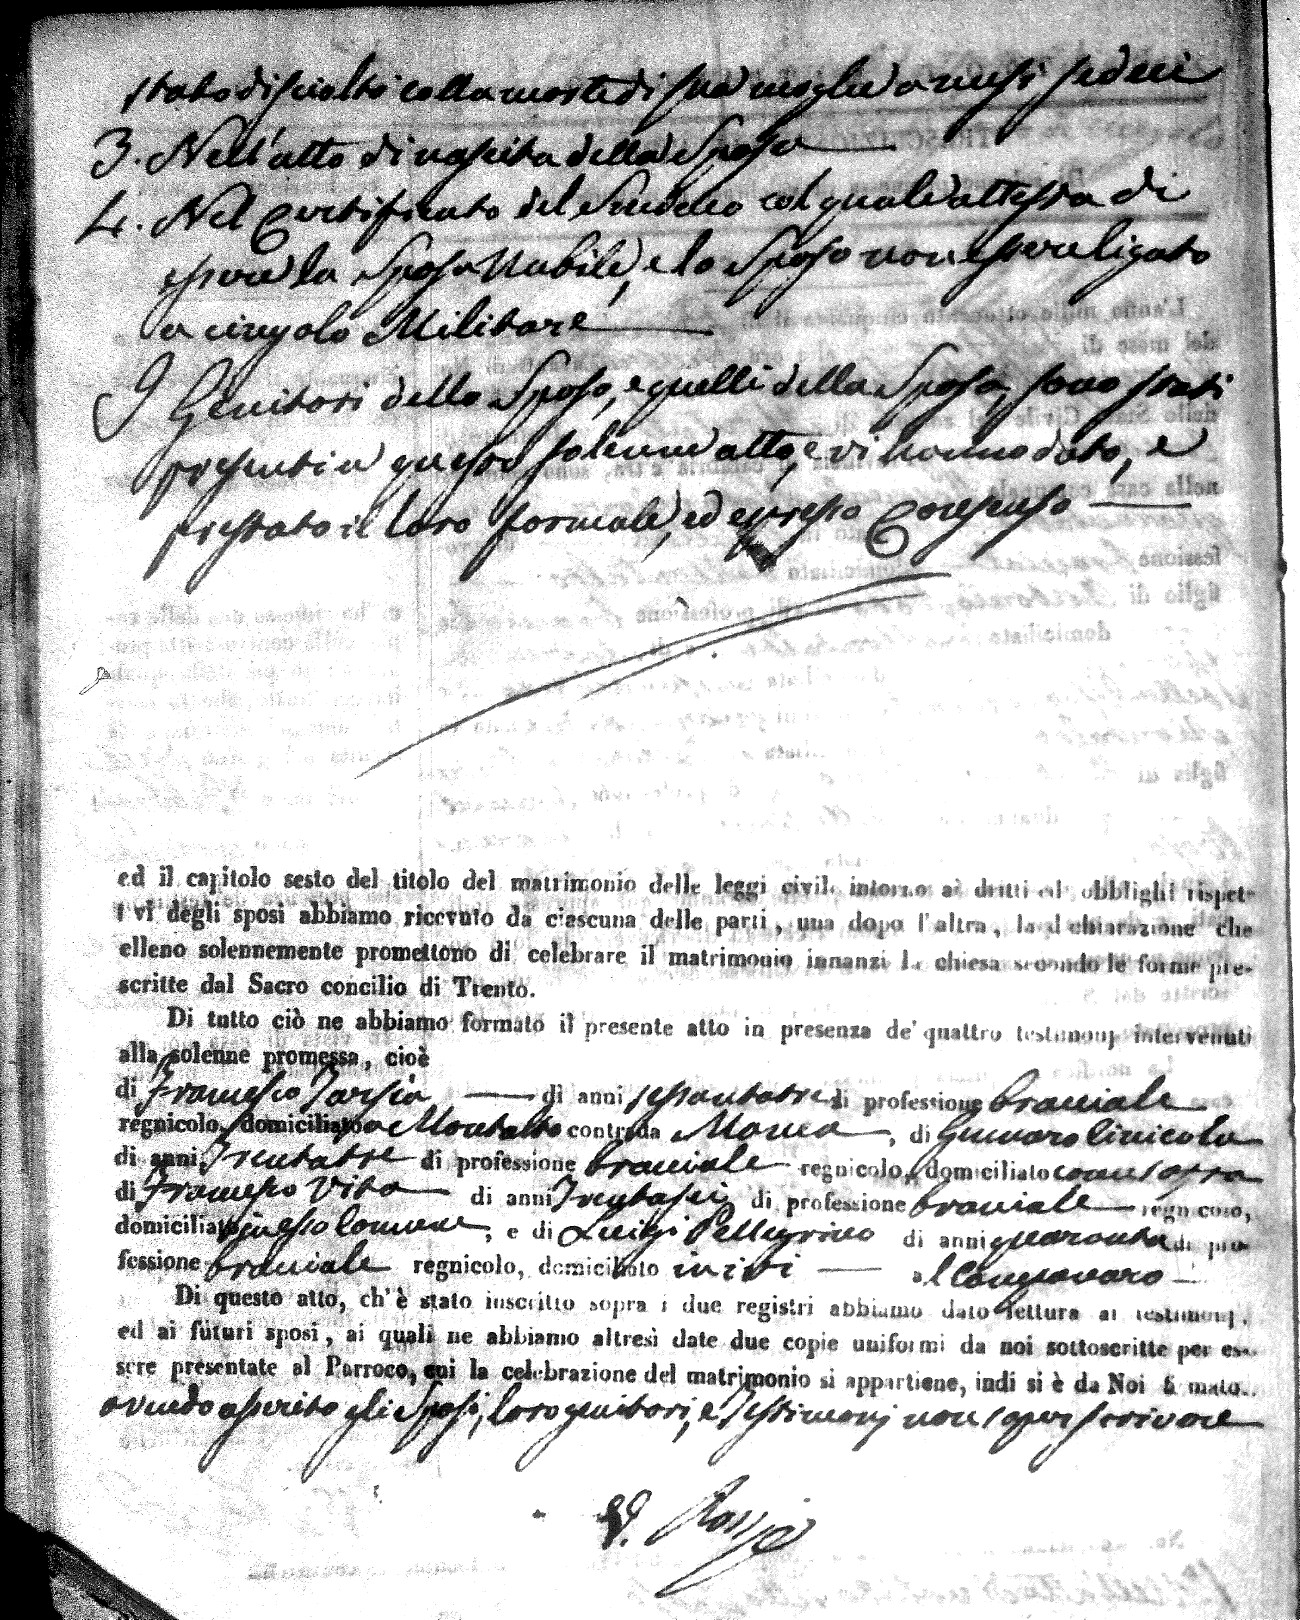 stato disciolto colla morte di sua moglie a mesi sedeci
3. Nell'atto di nascita della Sposa
4. Nel Certificato del Sindaco col quale attesta di
essere la Sposa Nubile, e lo Sposo non essere ligato
a cingolo Militare
I Genitori dello Sposo, e quelli della Sposa, sono stati
presenti a questo solenne atto, e vi hanno dato, e
prestato il loro formale, ed espresso Consenso
ed il capitolo sesto del titolo del matrimonio delle leggi civili intorno ai dritti ed obblighi rispet-
tivi degli sposi abbiamo ricevuto da ciascuna delle parti, una dopo l'altra, la dichiarazione che
elleno solennemente promettono di celebrare il matrimonio innanzi la chiesa secondo le forme pre-
scritte dal Sacro concilio di Trento.
Di tutto ciò ne abbiamo formato il presente atto in presenza de' quattro testimonj intervenuti
alla solenne promessa, cioè
di Francesco Tarsia di anni sessantatre di professione bracciale
regnicolo, domiciliato a Montalto contrada Manca, di Gennaro Linicola
di anni Trentatre di professione bracciale regnicolo, domiciliato come sopra
di Francesco Vita di anni Trentasei di professione bracciale regnicolo,
domiciliato in esso Comune, e di Luigi Pellegrino di anni quaranta di pro-
fessione bracciale regnicolo, domiciliato in ivi al
Di questo atto, ch'è stato inscritto sopra i due registri abbiamo dato lettura ai testimonj,
ed ai futuri sposi, ai quali ne abbiamo altresì date due copie uniformi da noi sottoscritte per es-
sere presentate al Parroco, cui la celebrazione del matrimonio si appartiene, indi si è da Noi firmato..
avendo asserito gli Sposi, loro genitori, e Testimonj non saper scrivere
Rossi